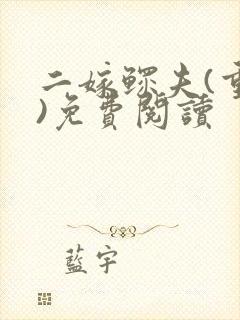 二嫁鰥夫(重
)免費閱讀
藍宇